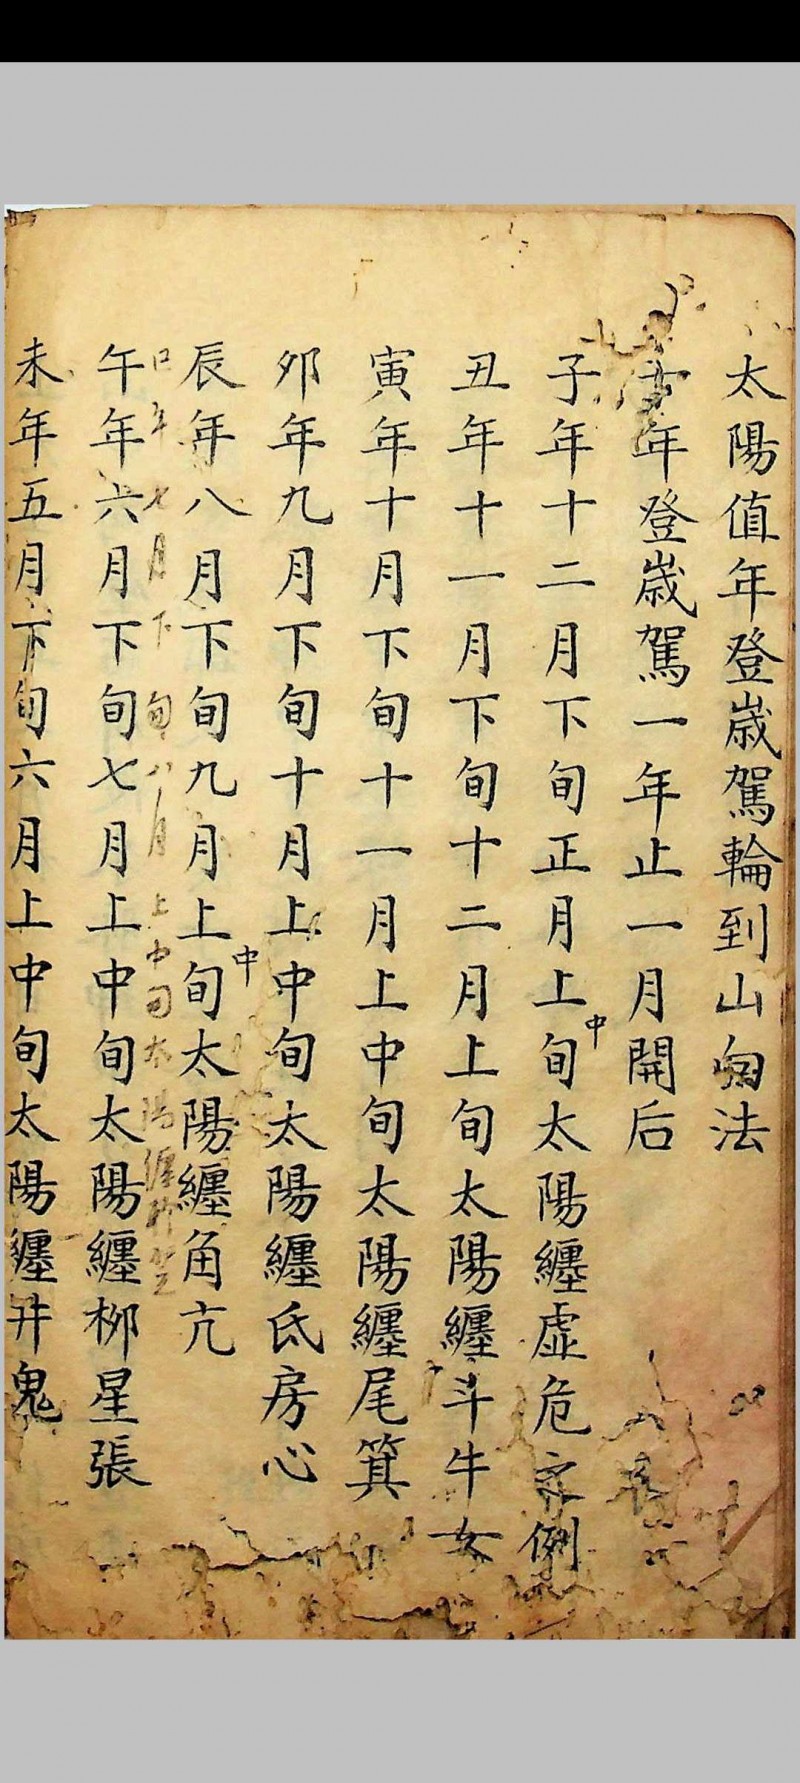 太陽值年登嵗駕輪到山向法
年登嵗駕一年止一月開后
子年十二月下旬正月上中旬太陽纏虛危之例
丑年十一月下旬十二月上旬太陽纏斗牛女
寅年十月下旬十一月上中旬太陽纏尾箕
卯年九月下旬十月上中旬太陽纏氐房心
辰年八月下旬九月上中旬太陽纏角亢
年七月下旬八月上中旬太陽纏
午年六月下旬七月上中旬太陽纏柳星張
未年五月下旬六月上中旬太陽纏井鬼